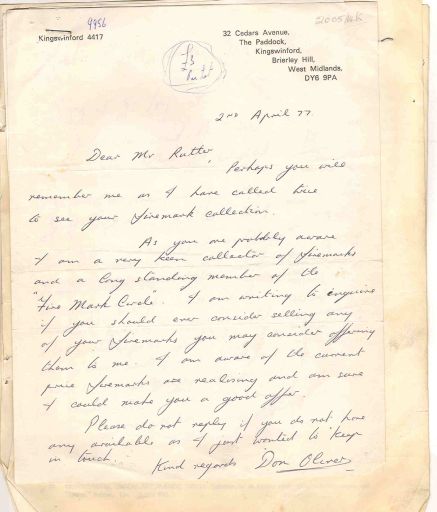 Kingswinford 4417
9956
32 Cedars Avenue,
The Paddock,
Kingswinford,
Brierley Hill,
West Midlands,
DY6 9PA
2nd April 77.
Dear Mr Rutter,
Perhaps you will
remember me as I have called twice
to see your firemark collection.
As you are probably aware
I am a very keen collector of firemarks
and a long standing member of the
"Fire Mark Circle. I am writing to enquire
if you should ever consider selling any
of your firemarks you may consider offering
them to me. I am aware of the current
price firemarks are realising and am sure
I could make you a good offer.
Please do not reply if you do not have
any available as I just wanted to keep
in touch.
Kind regards Don Oliver